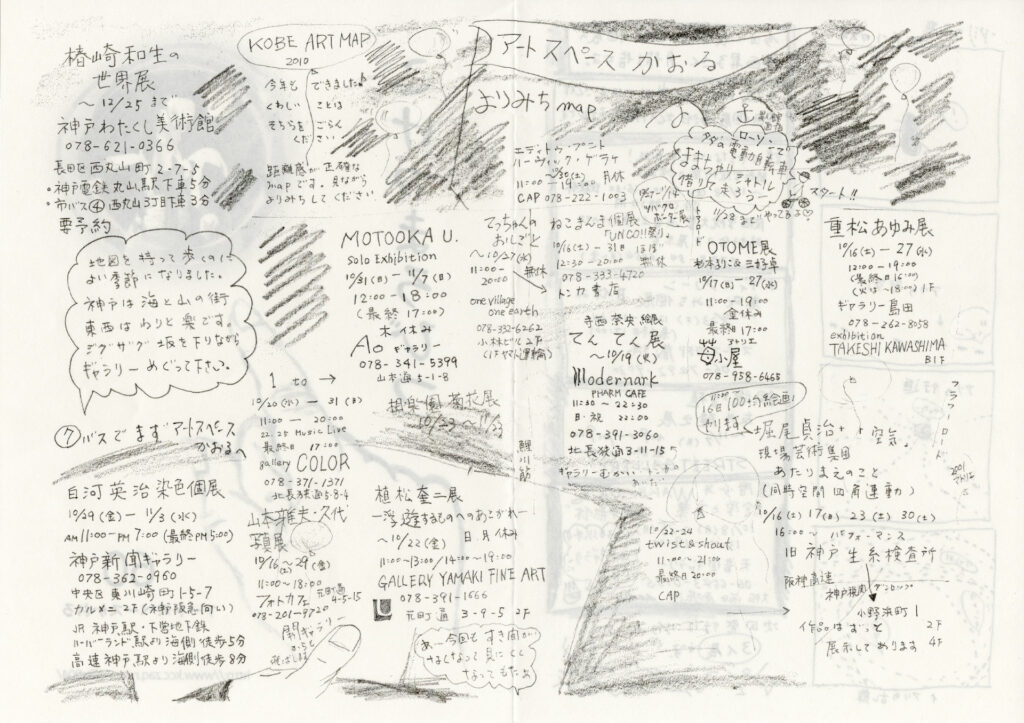 椿崎和生の
世界展
〜12/25まで
神戸わたくし美術館
078-621-0366
長田区西丸山町2-7-5
・神戸電鉄丸山駅下車5分
・市バス④西丸山3丁目下車3分
要予約
KOBE ART MAP
2010
今年も できました。
くわしい ことは
そちらを ごらん
ください
距離感が正確な
mapです。見ながら
よりみちしてください
アートスペースかおる
よりみちmap
地図を持って歩くのに
よい季節になりました。
神戸は海と山の街
東西はわりと楽です。
ジグザグ坂を下りながら
ギャラリーめぐって下さい。
⑦バスでまずアートスペース
かおるへ
白河英治染色個展
10/29(金)〜11/3(水)
AM11:00〜PM7:00(最終PM5:00)
神戸新聞ギャラリー
078-362-0960
中央区東川崎町1-5-7
カルメニ2F(神戸阪急向い)
JR神戸駅・下
ハーバーランド駅より海側徒歩5分
高速神戸駅より海側徒歩8分
MOTOOKA U.
Solo Exhibition
10/31(日)〜11/7(日)
12:00-18:00
(最終17:00)
木休み
Ao ギャラリー
078-341-5399
山本通5-1-8
1 to →
10/20(水)〜31(日)
11:00〜20:00
22.25 Music Live
最終日17:00
gallery COLOR
078-371-1371
北長狭通5-8-4
相楽園菊花展
10/23〜11/23
山本雅夫・久代
写真展
10/16〜29(金)
11:00〜18:00
フォトカフェ 元町通
4-5-15
078-201-9720
植松奎二展
ー浮遊するものへのあこがれー
〜10/22(金) 日、月休み
11:00〜13:00/14:00〜19:00
GALLERY YAMAKI FINE ART
078-391-1666
元町通3-9-5 2F
あ〜今回もすき間が
なくなって見にくく
なってもたぁ
エディトゥ・プント
ハーヴィック・ゲラケ
〜10/30(土) 月休
11:00〜19:00
CAP 078-222-1003
てっちゃんの
おしごと
〜10/27(水)
11:00- 無休
20:00
one village
one earth
078-332-6262
小林ビル2F
ねこまんま個展
「UNCO!!祭り」
10/16(土)〜31日 ほぼ
12:30〜20:00 無休
078-333-4720
トンカ書店
寺西奈央絵展
てんてん展
〜10/19(火)
Modernark
PHARM CAFE
11:30〜22:30
日・祝 22:00
078-391-3060
北長狭通3-11-15
鯉川筋
トアロード
ローソンで
電動自転車
ままちゃり
借りて走ろう
スタート!!
11/28までやってるよ
OTOME展
10/17(日)-27(水)
11:00-19:00
金休み
最終日17:00
アトリエ
苺小屋
078-958-6465
16日100均絵画
重松あゆみ展
10/16(土)-27(水)
12:00-19:00
(最終日16:00)
(火は〜18:00) 1F
ギャラリー島田
078-262-8058
exhibition
TAKESHI KAWASHIMA
B1F
フラワーロード
堀尾貞治++空気。
現場芸術集団
あたりまえのこと
(同時空間四角連動)
10/16(土)17(日)23(土)30(土)
15:00〜パフォーマンス
旧神戸生糸検査所
阪神高速
小野浜町1
作品はずっと 2F
展示してあります 4F
10/22-24
twist&shout
11:00〜21:00
最終日20:00
CAP